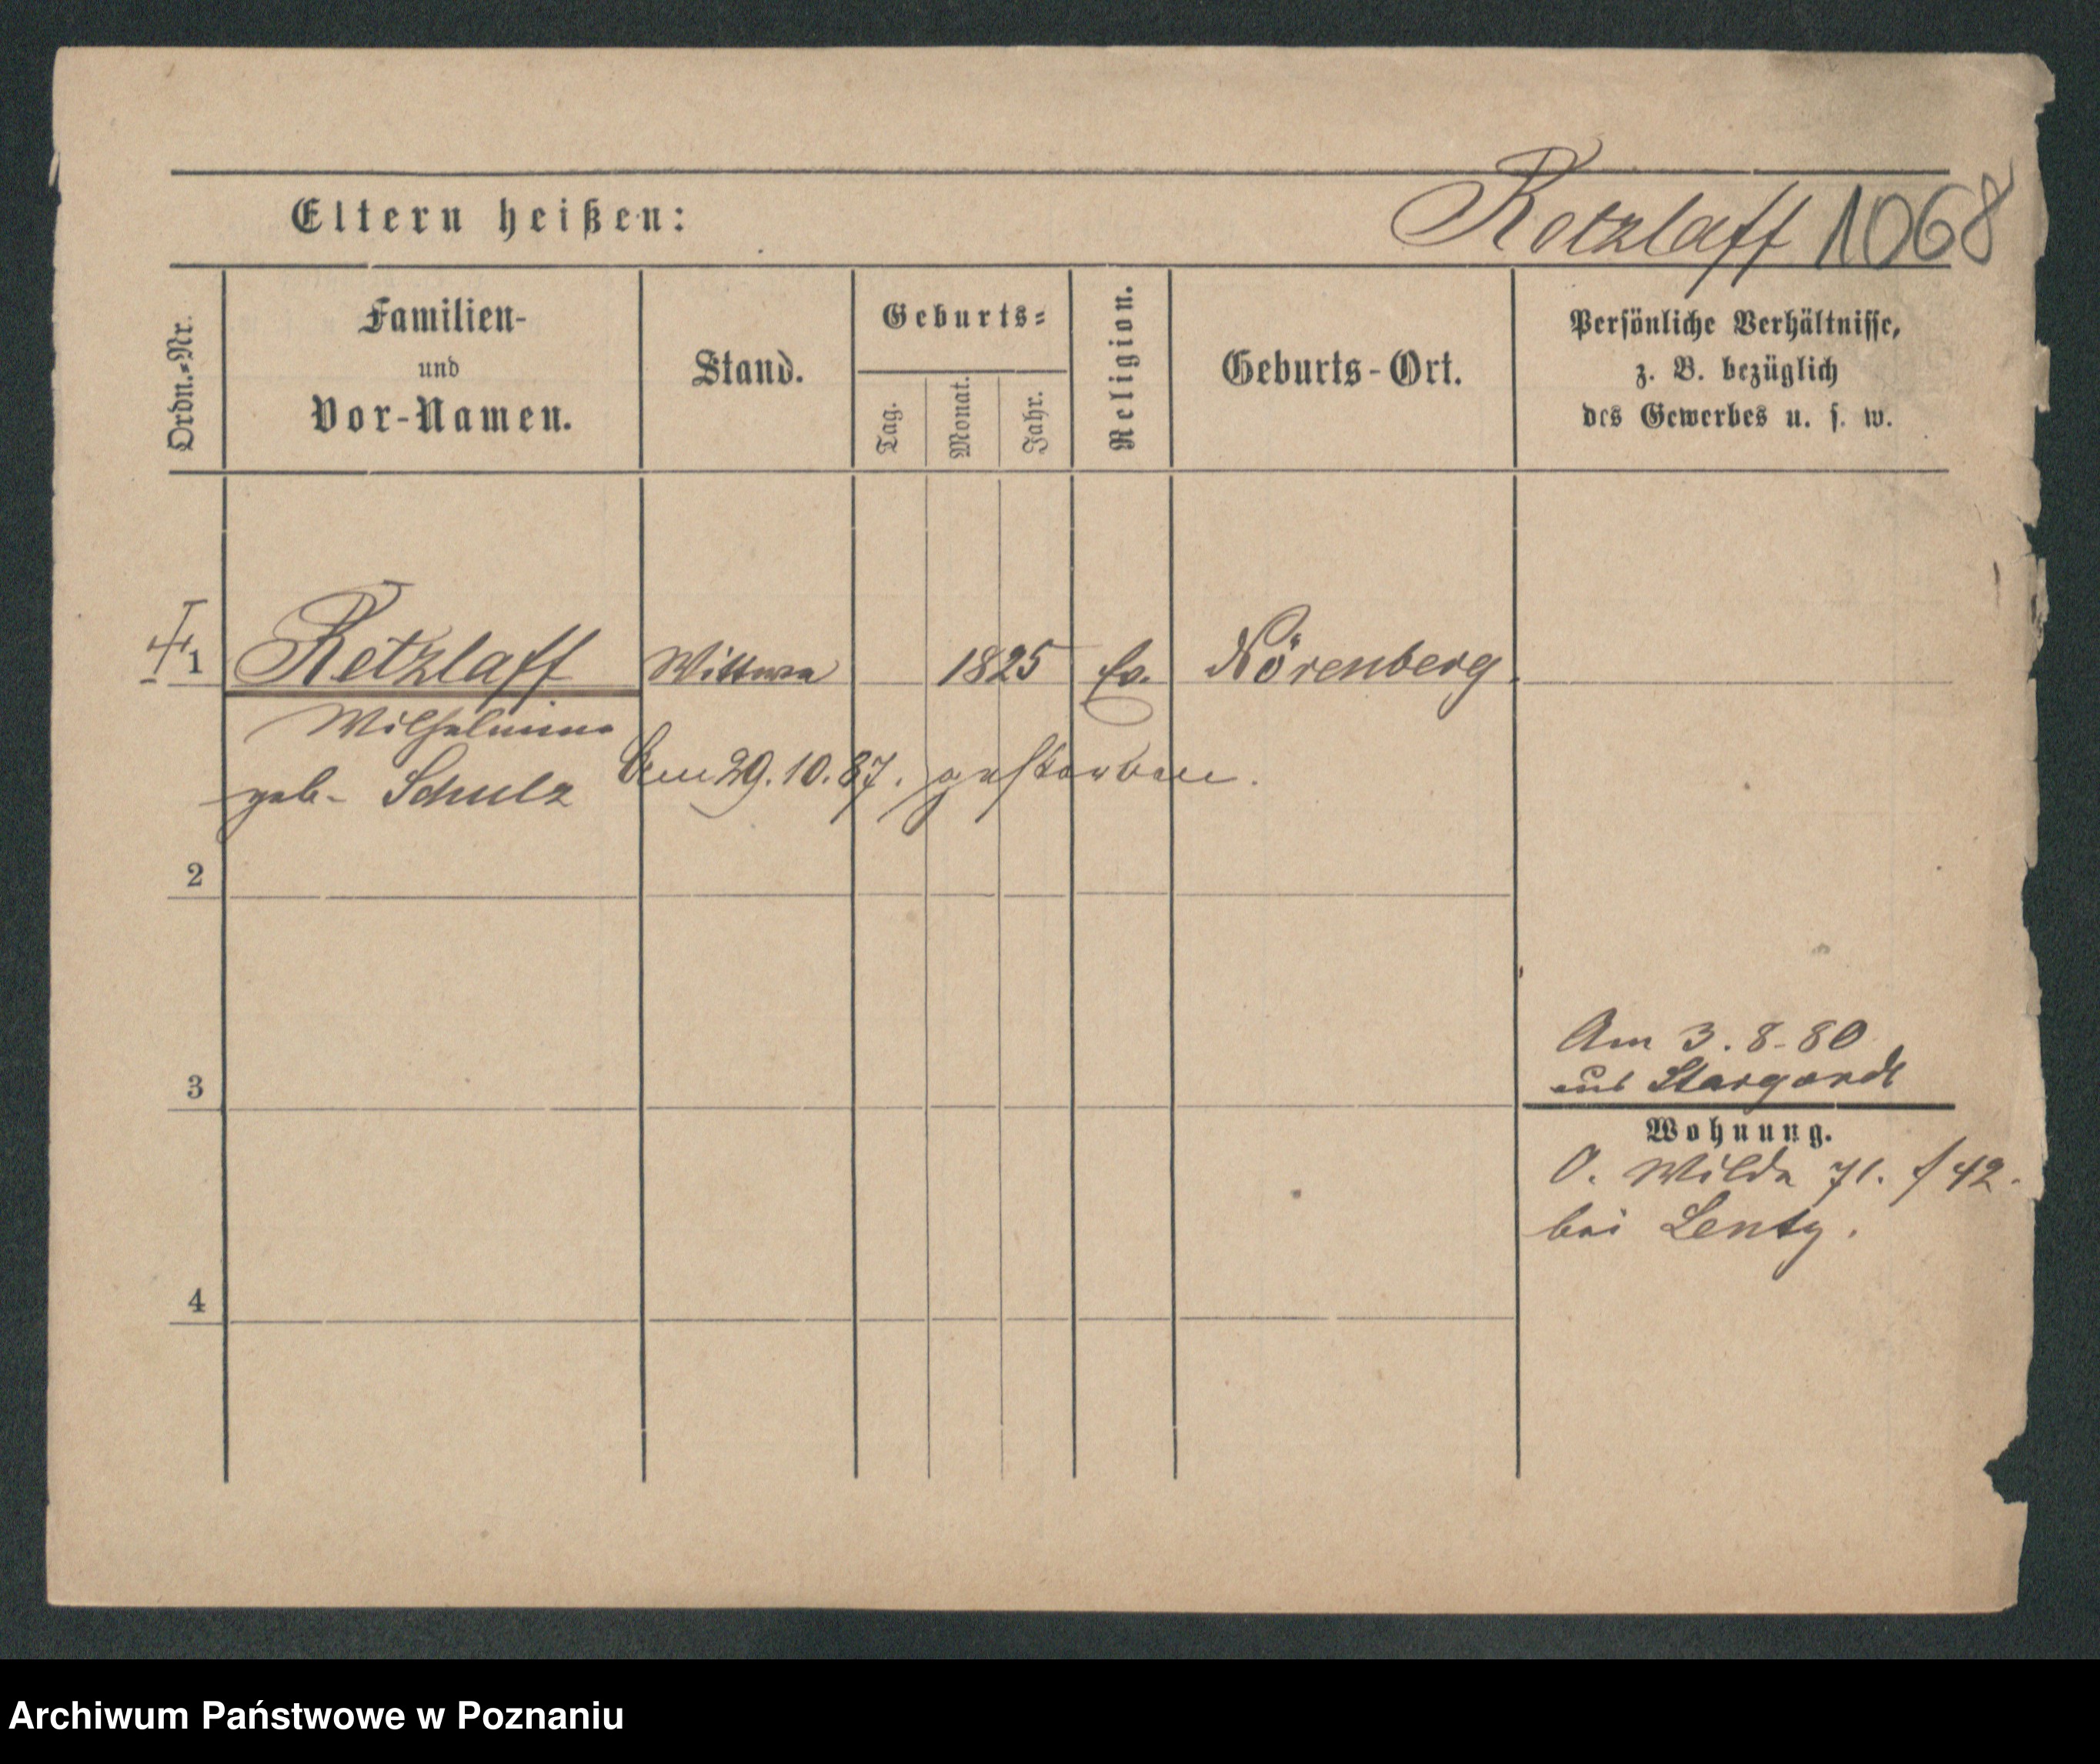 Eltern heißen:
Retzlaff 1068
Ordn.-Nr.
Familien-
und
Vor-Namen.
Stand.
Geburts-
Tag.
Monat.
Jahr.
Religion.
Geburts-Ort.
Persönliche Verhältnisse,
z. B. bezüglich
des Gewerbes u. s. w.
1 Retzlaff Wittwe 1825 Ev. Nörenberg.
Wilhelmine
geb. Schulz
Am 29.10.87. gestorben.
2
3
Am 3.8.80
aus Stargardt
Wohnung.
O. Wilda 71. / 42.
bei Lentz.
4
Archiwum Państwowe w Poznaniu